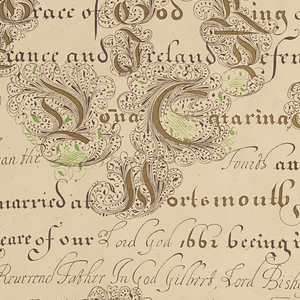 Grace of God King
France and Ireland Defen
Dona Catarina
an the Fourth an
married at Portsmouth
yeare of our Lord God 1661 beeing
Reverend Father In God Gilbert Lord Bish